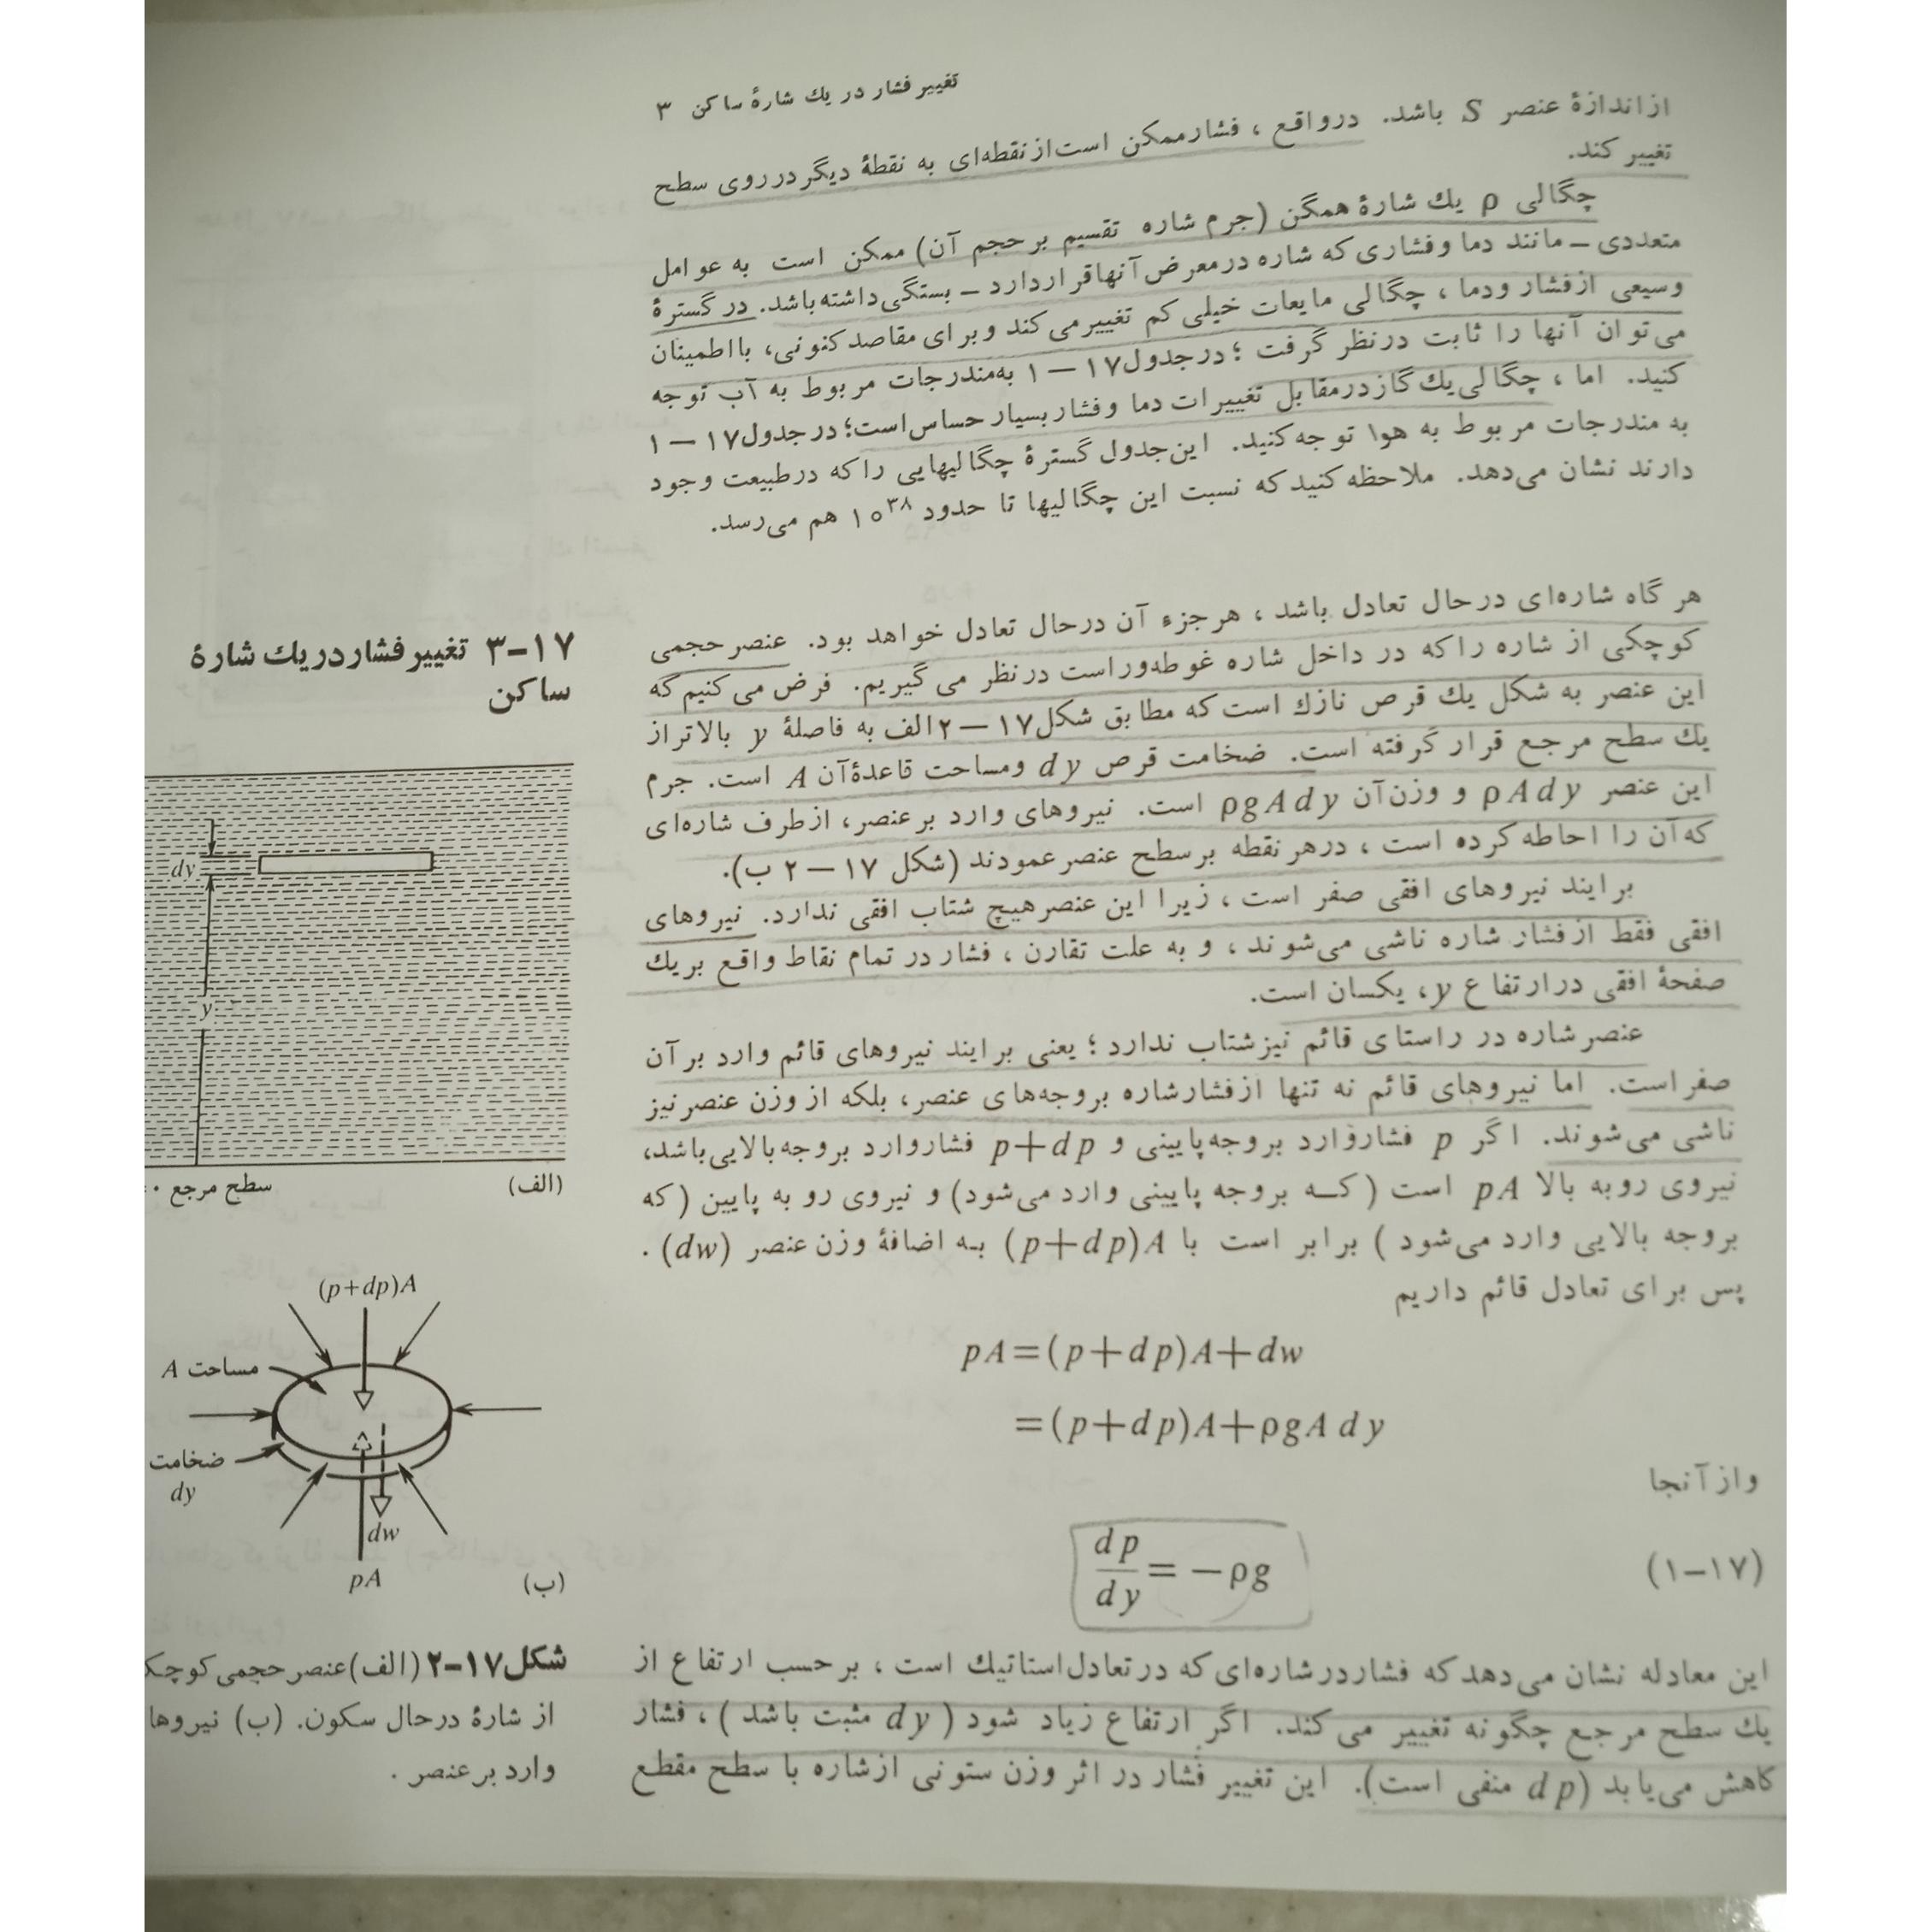 تغییر فشار در یك شارهٔ ساکن ۳
از اندازهٔ عنصر S باشد. درواقع ، فشار ممکن است از نقطه‌ای به نقطهٔ دیگر در روی سطح
تغییر کند.
چگالی ρ یك شارهٔ همگن (جرم شاره تقسیم بر حجم آن) ممکن است به عوامل
متعددی ــ مانند دما و فشاری که شاره در معرض آنها قرار دارد ــ بستگی داشته باشد. در گسترهٔ
وسیعی از فشار و دما ، چگالی مایعات خیلی کم تغییر می‌کند و برای مقاصد کنونی، با اطمینان
می‌توان آنها را ثابت درنظر گرفت ؛ در جدول ۱۷ – ۱ به مندرجات مربوط به آب توجه
کنید. اما ، چگالی یك گاز در مقابل تغییرات دما و فشار بسیار حساس است؛ در جدول ۱۷ – ۱
به مندرجات مربوط به هوا توجه کنید. این جدول گسترهٔ چگالیهایی را که در طبیعت وجود
دارند نشان می‌دهد. ملاحظه کنید که نسبت این چگالیها تا حدود ۱۰^۳۸ هم می‌رسد.
۱۷–۳ تغییر فشار در یك شارهٔ
ساکن
هر گاه شاره‌ای درحال تعادل باشد ، هر جزء آن درحال تعادل خواهد بود. عنصر حجمی
کوچکی از شاره را که در داخل شاره غوطه‌ور است درنظر می گیریم. فرض می کنیم که
این عنصر به شکل یك قرص نازك است که مطابق شکل ۱۷ – ۲ الف به فاصلهٔ y بالاتر از
یك سطح مرجع قرار گرفته است. ضخامت قرص dy و مساحت قاعدهٔ آن A است. جرم
این عنصر ρAdy و وزن آن ρgAdy است. نیروهای وارد بر عنصر، از طرف شاره‌ای
که آن را احاطه کرده است ، در هر نقطه بر سطح عنصر عمودند (شکل ۱۷ – ۲ ب).
برایند نیروهای افقی صفر است ، زیرا این عنصر هیچ شتاب افقی ندارد. نیروهای
افقی فقط از فشار شاره ناشی می‌شوند ، و به علت تقارن ، فشار در تمام نقاط واقع بر یك
صفحهٔ افقی در ارتفاع y، یکسان است.
عنصر شاره در راستای قائم نیز شتاب ندارد ؛ یعنی برایند نیروهای قائم وارد بر آن
صفر است. اما نیروهای قائم نه تنها از فشار شاره بر وجه‌های عنصر، بلکه از وزن عنصر نیز
ناشی می‌شوند. اگر p فشار وارد بر وجه پایینی و p+dp فشار وارد بر وجه بالایی باشد،
نیروی رو به بالا pA است (کـه بر وجه پایینی وارد می‌شود) و نیروی رو به پایین (که
بر وجه بالایی وارد می‌شود ) برابر است با (p+dp)A بـه اضافهٔ وزن عنصر (dw) .
پس برای تعادل قائم داریم
pA=(p+dp)A+dw
=(p+dp)A+ρgA dy
و از آنجا
dp/dy = −ρg (۱–۱۷)
این معادله نشان می‌دهد که فشار در شاره‌ای که در تعادل استاتیك است ، بر حسب ارتفاع از
یك سطح مرجع چگونه تغییر می کند. اگر ارتفاع زیاد شود ( dy مثبت باشد ) ، فشار
کاهش می‌یابد (dp منفی است). این تغییر فشار در اثر وزن ستونی از شاره با سطح مقطع
dy
y
سطح مرجع ۰=
(الف)
(p+dp)A
مساحت A
ضخامت
dy
dw
pA
(ب)
شکل ۱۷–۲ (الف) عنصر حجمی کوچک
از شارهٔ درحال سکون. (ب) نیروها
وارد بر عنصر .